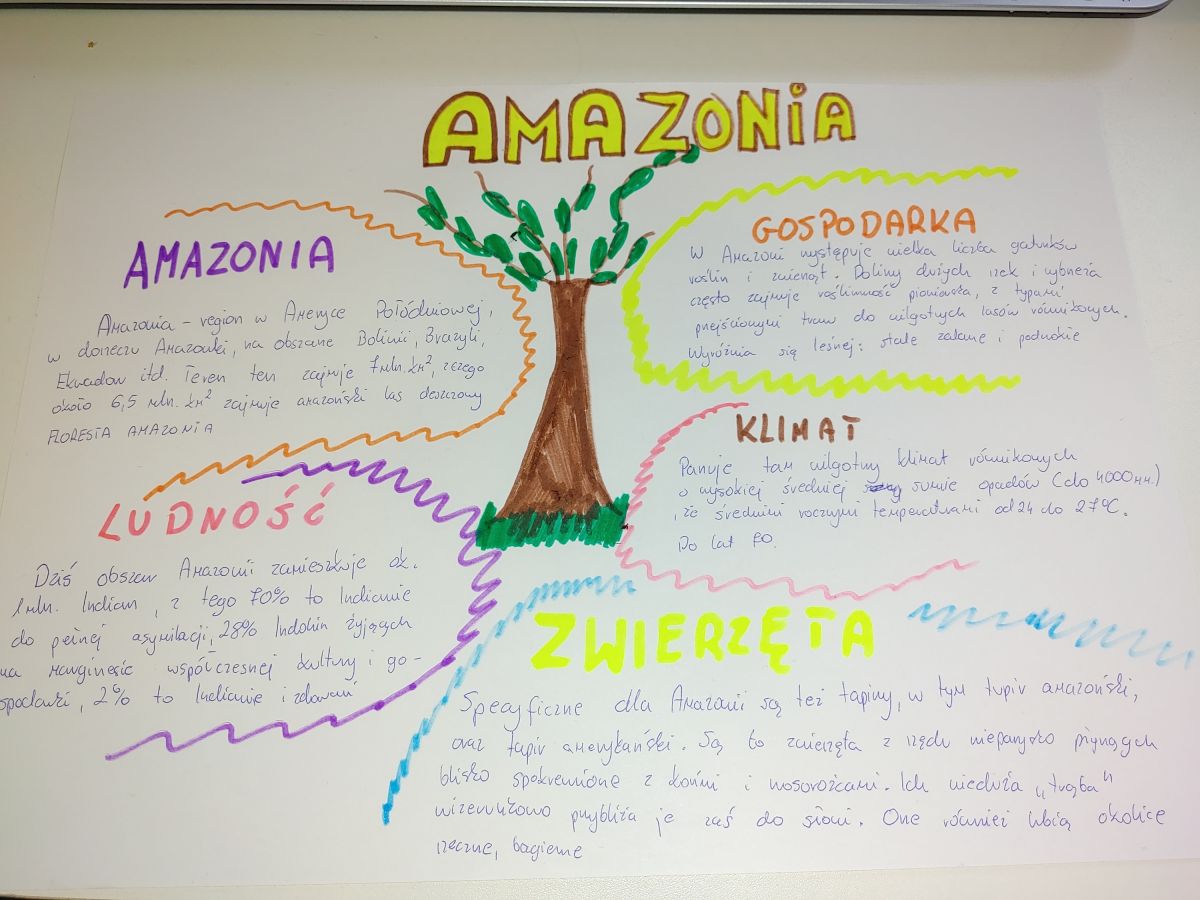 AMAZONIA
AMAZONIA
Amazonia - region w Ameryce Połódniowej,
w dorzeczu Amazonki, na obszarze Boliwii, Brazyli,
Ekwadow itd. Teren ten zajmuje 7 mln. km², z czego
około 6,5 mln. km² zajmuje amazoński las deszczowy
FLORESTA AMAZONIA
LUDNOŚĆ
Dziś obszar Amazonii zamieszkuje ok.
1 mln. Indian, z tego 70% to Indianie
do pełnej asymilacji, 28% Indian żyjących
na marginesie współczesnej kultury i go-
spodarki, 2% to Indianie izolowani
GOSPODARKA
W Amazoni występuje wielka liczba gatunków
roślin i zwierząt. Doliny dużych rzek i wybrzeża
często zajmuje roślinność pionierska, z typami
przejściowymi traw do wilgotnych lasów równikowych.
Wyróżnia się leśnej: stale zalane i
KLIMAT
Panuje tam wilgotny klimat równikowych
o wysokiej średniej sumie opadów (do 4000 mm.)
, ze średnimi rocznymi temperaturami od 24 do 27°C.
Do lat 70.
ZWIERZĘTA
Specyficzne dla Amazonii są też tapiry, w tym tapir amazoński,
oraz tapir amerykański. Są to zwierzęta z rzędu nieparzysto
blisko spokrewnione z końmi i nosorożcami. Ich nieduża „trąba"
wizerunkowo przybliża je zaś do słoni. One również lubią okolice
rzeczne, bagienne